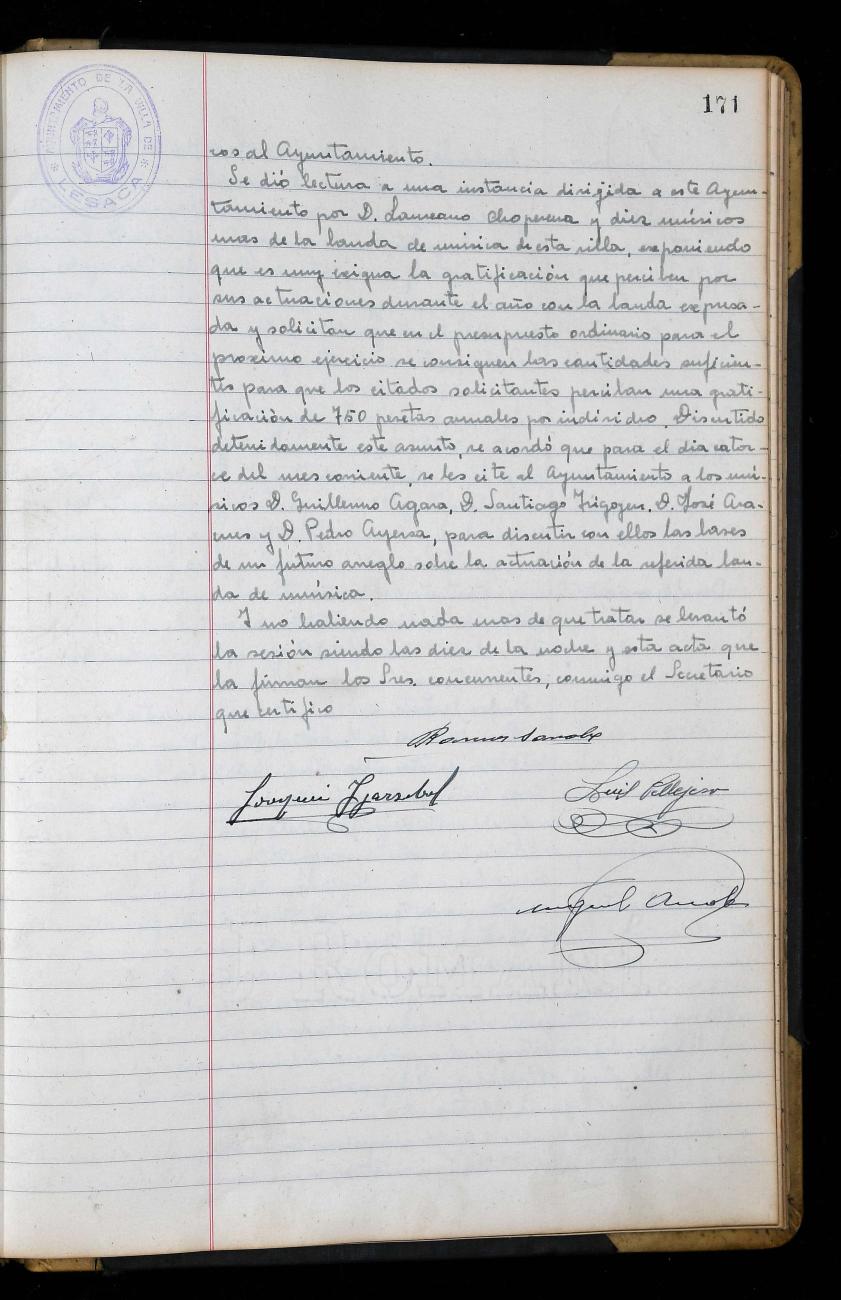 171
AYUNTAMIENTO DE LA VILLA DE
LESACA
ros al Ayuntamiento.
Se dió lectura a una instancia dirigida a este Ayun-
tamiento por D. Laureano Choperena y diez músicos
mas de la banda de música de esta villa, exponiendo
que es muy exigua la gratificación que perciben por
sus actuaciones durante el año con la banda expresa-
da y solicitan que en el presupuesto ordinario para el
proximo ejercicio se consignen las cantidades suficien-
tes para que los citados solicitantes perciban una grati-
ficación de 750 pesetas anuales por individuo. Discutido
detenidamente este asunto, se acordó que para el dia cator-
ce del mes corriente, se les cite al Ayuntamiento a los mú-
sicos D. Guillermo Agara, D. Santiago Irigoyen, D. José Ara-
nes y D. Pedro Ayersa, para discutir con ellos las bases
de un futuro arreglo sobre la actuación de la referida ban-
da de música.
Y no habiendo nada mas de que tratar se levantó
la sesión siendo las diez de la noche y esta acta que
la firman los Sres. concurrentes, conmigo el Secretario
que certifico
Joaquin
Luis Pellejero
Miguel